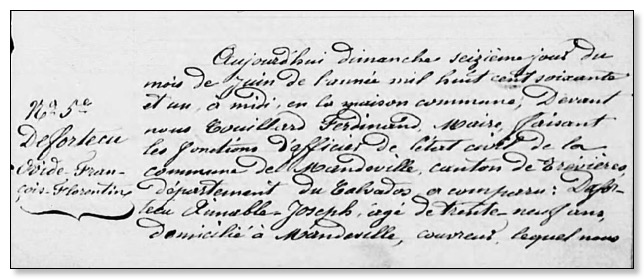 Aujourd'hui dimanche seizième jour du
mois de Juin de l'année mil huit cent soixante
et un, à midi, en la maison commune, Devant
nous Touillard Ferdinand, Maire, faisant
les fonctions d'officier de l'état civil de la
commune de Mandeville, canton de Trévières,
département du Calvados, a comparu: Defor-
tecu Aimable-Joseph, âgé de trente-neuf ans,
domicilié à Mandeville, couvreur, lequel nous
No. 5e
Defortecu
Ovide-Fran-
çois-Florentin